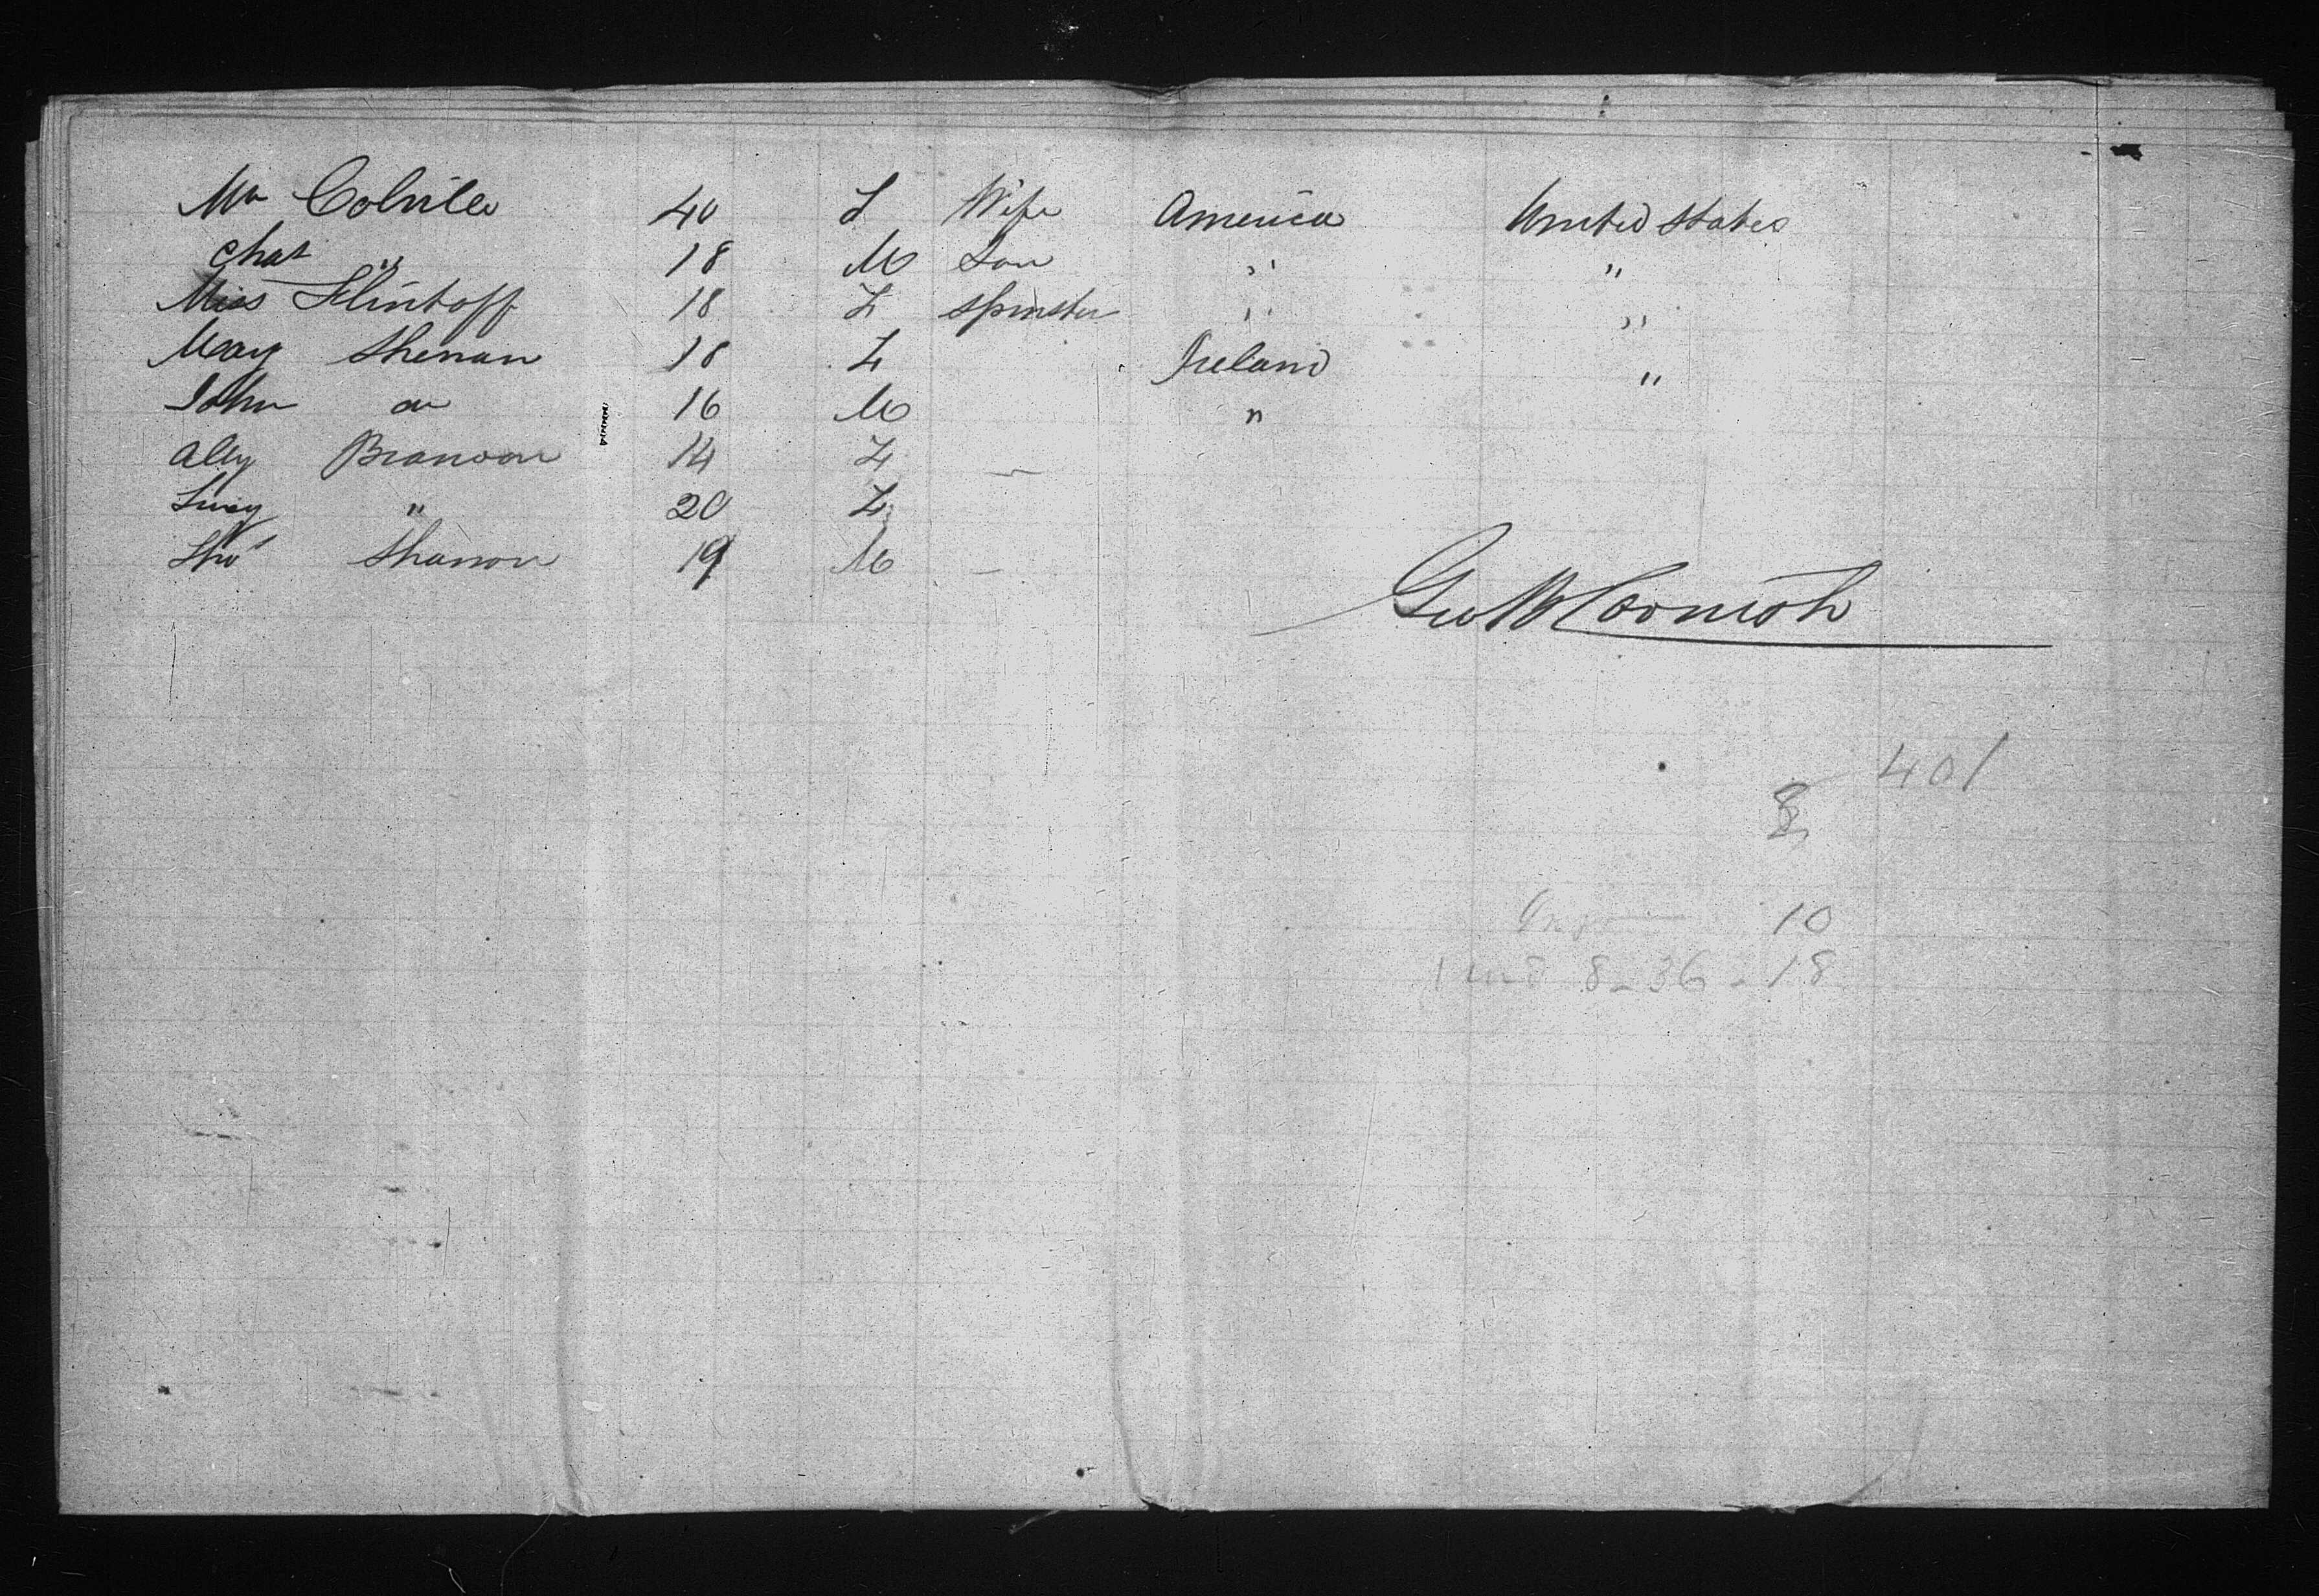 Mrs Colville 40 F Wife America United States
Chas " 18 M Son " "
Miss Flintoff 18 F Spinster " "
Mary Shenan 18 F Ireland "
John do 16 M "
Ally Brannon 14 F —
" 20 F
Thos Shannon 19 M —
Geo W Cornish
401
8
10
8-36-18